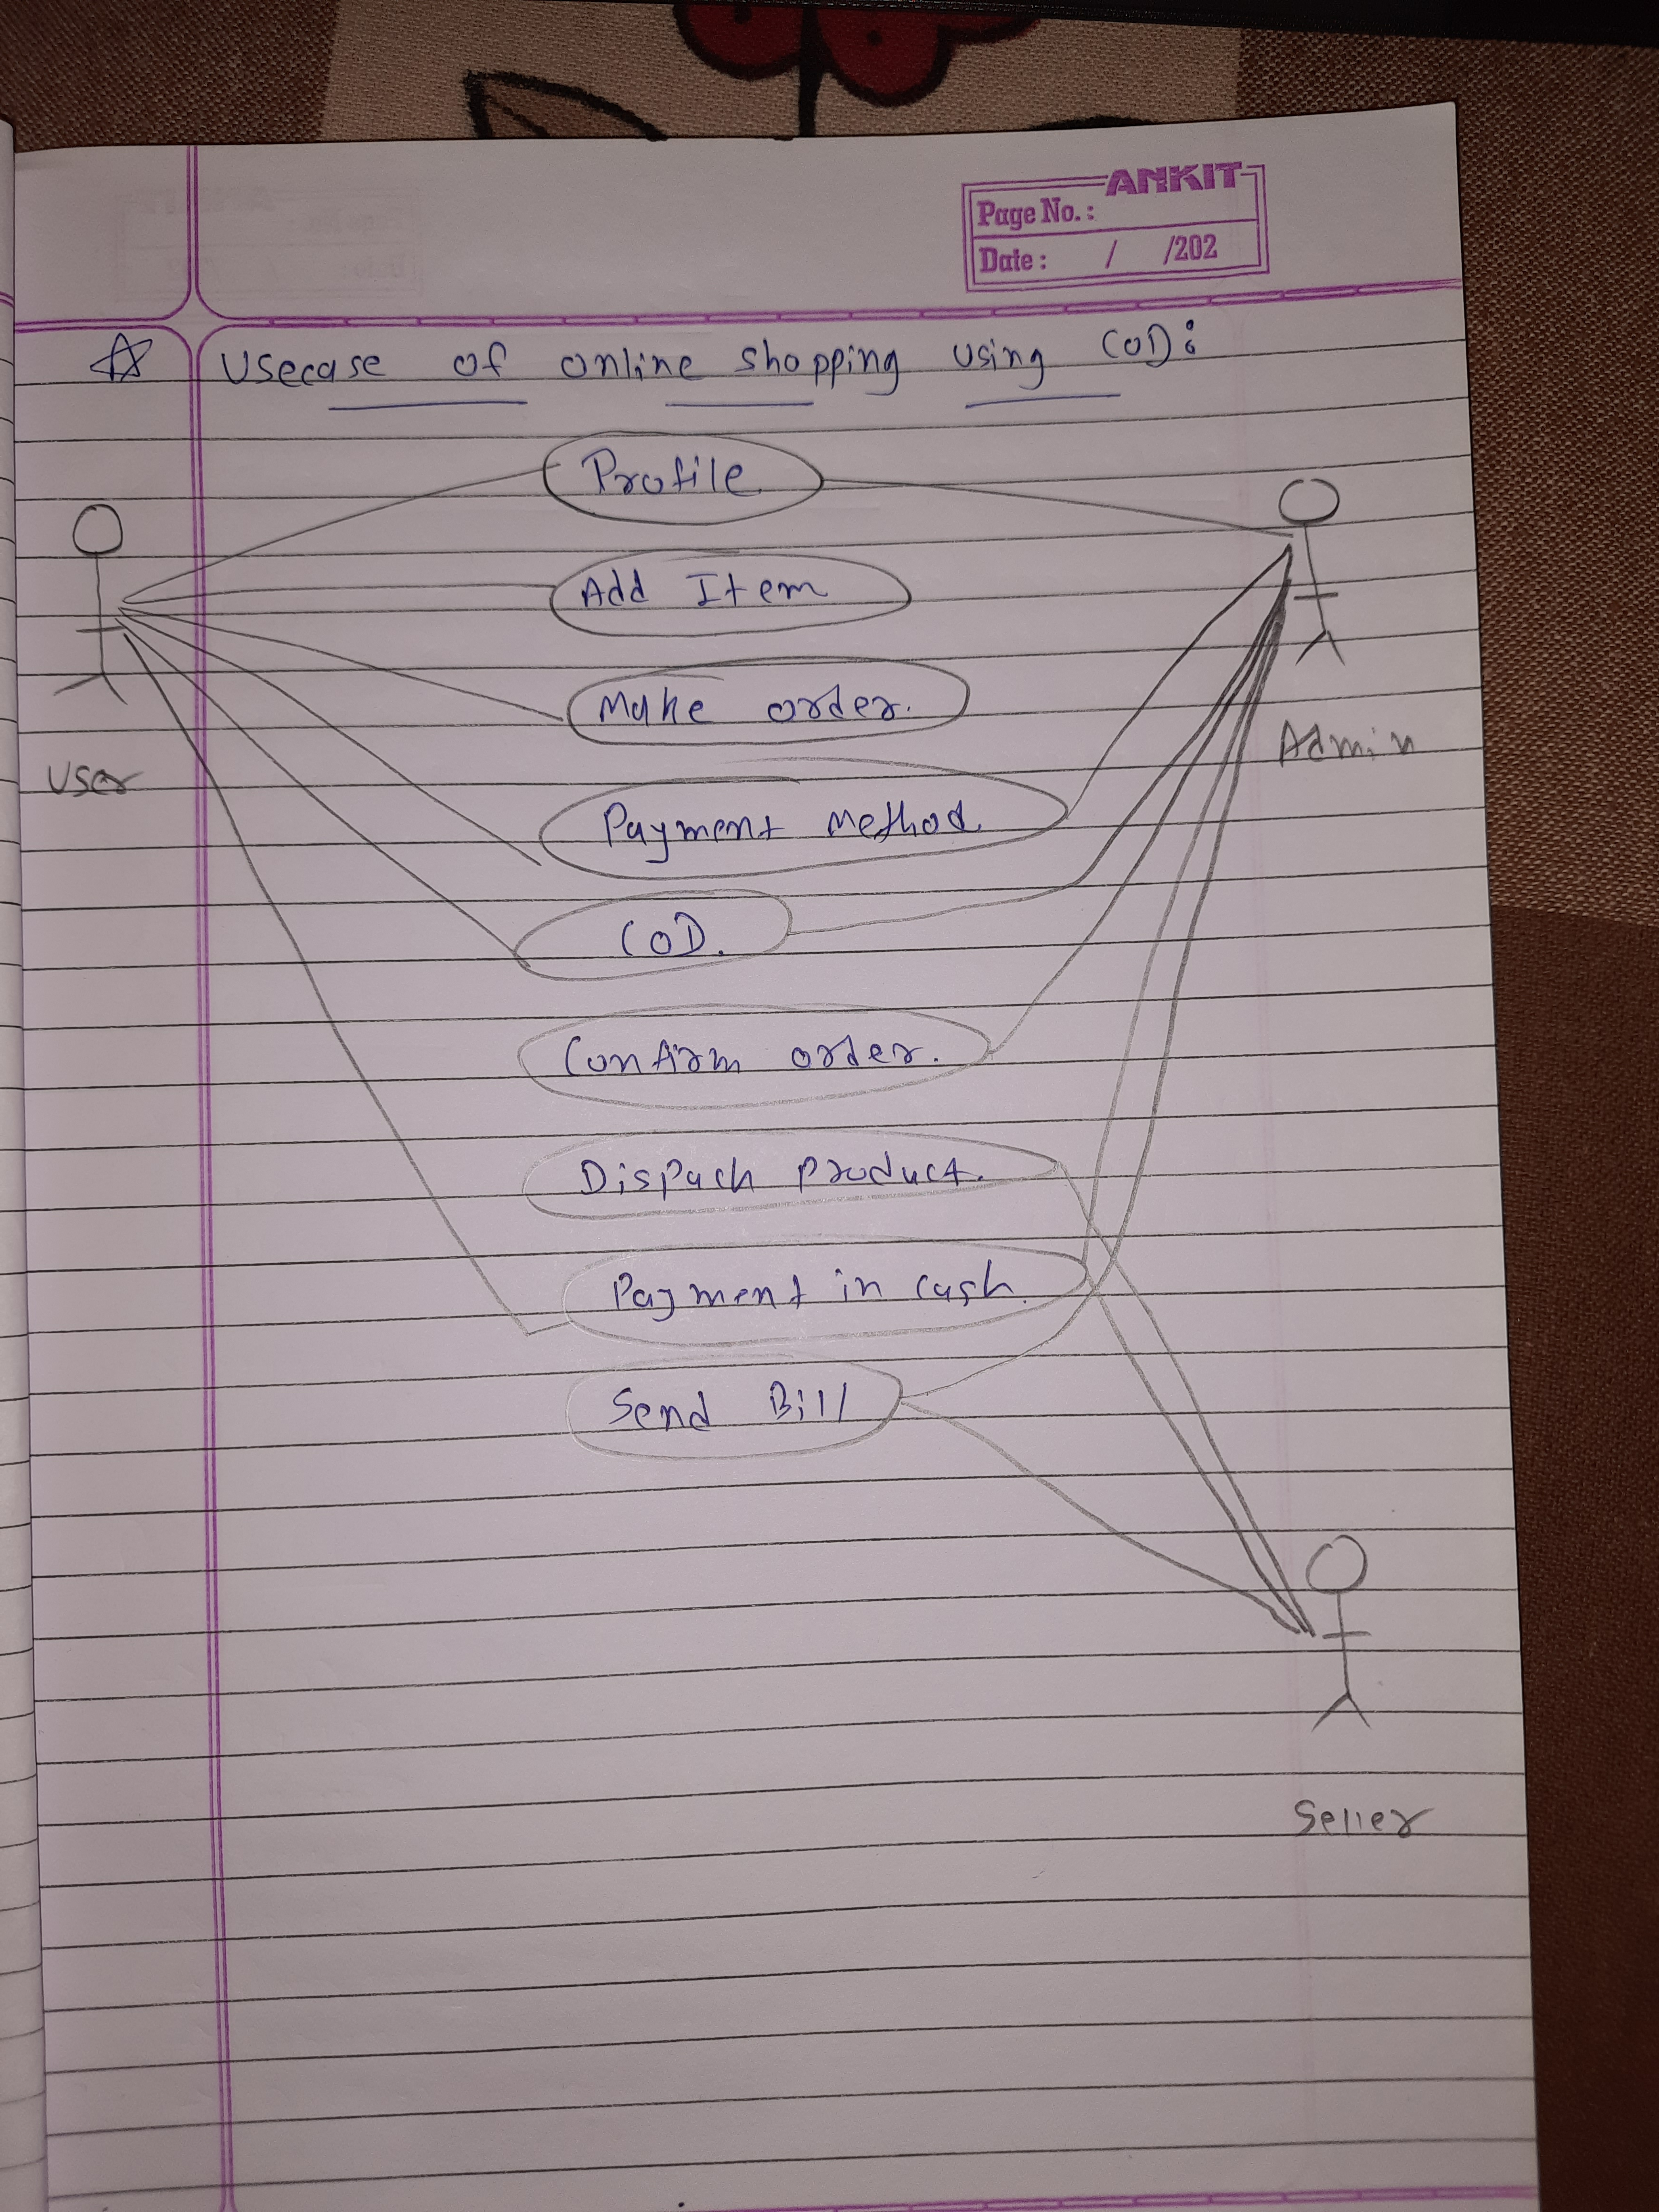 ANKIT
Page No. :
Date : / /202
Usecase of online shopping using COD:
Profile
Add Item
Make order.
Admin
User
Payment Method.
COD.
Confirm order.
Dispach product.
Payment in cash.
Send Bill
Seller